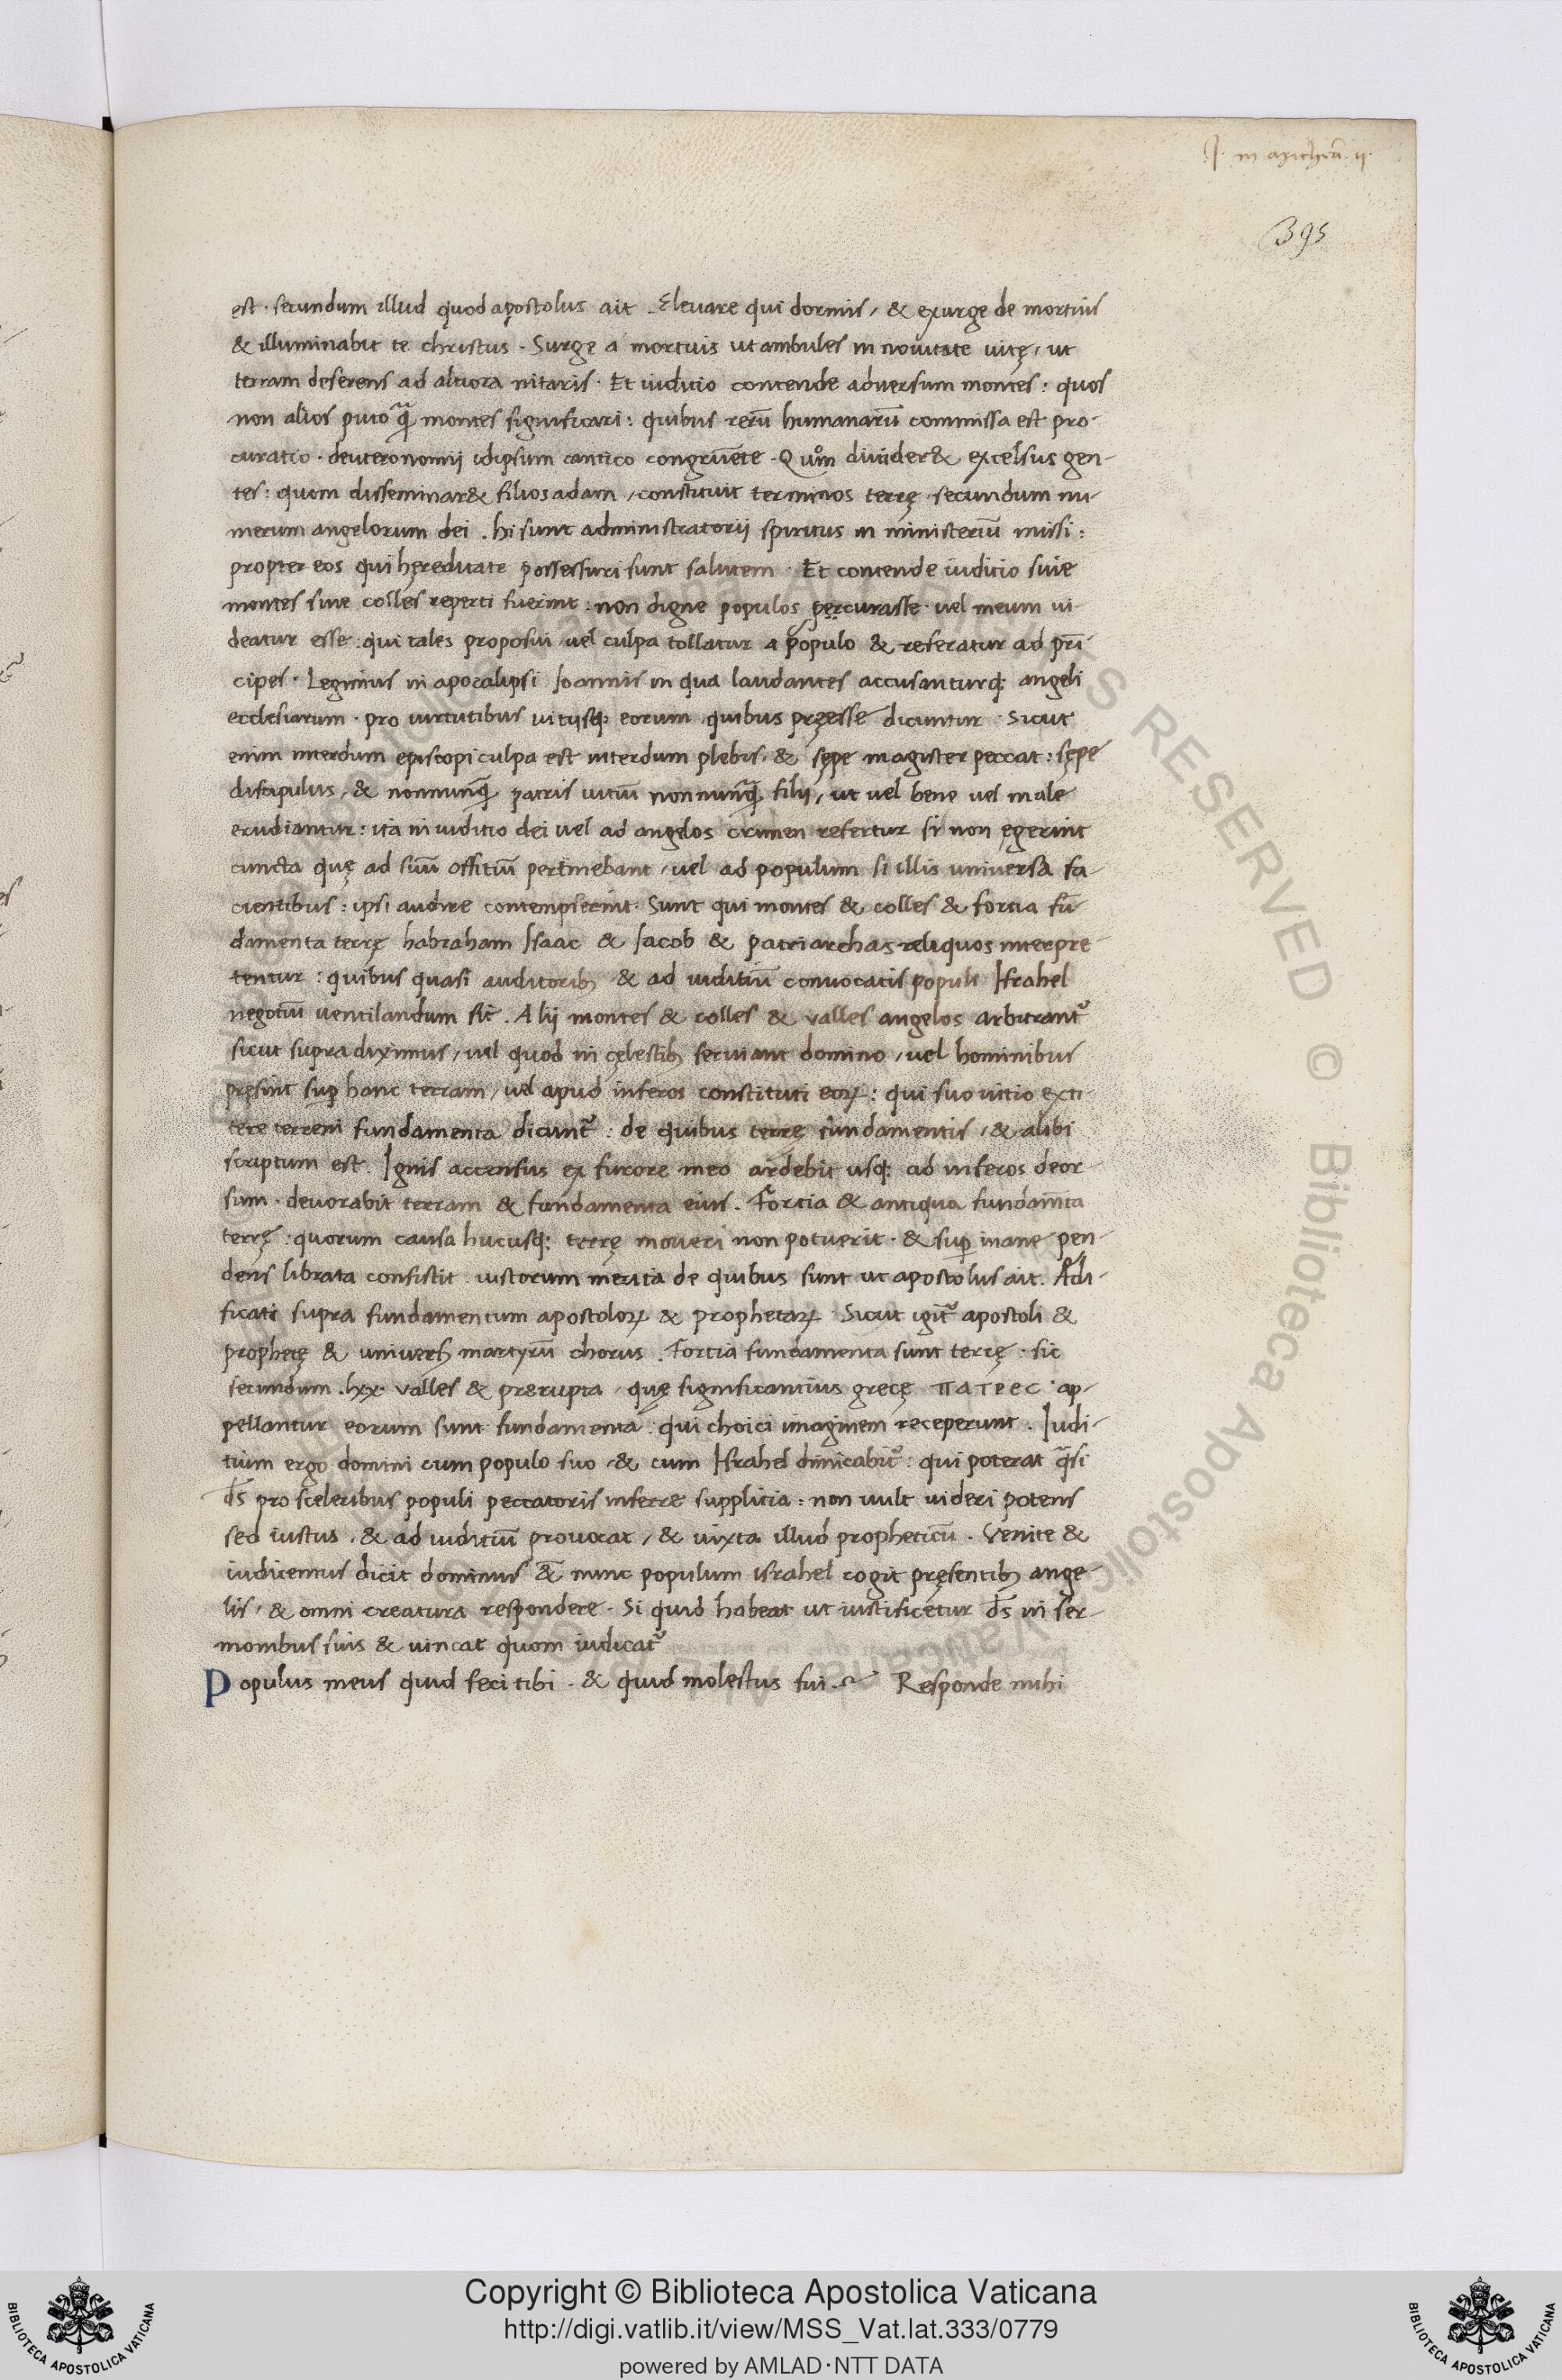 J. in michea. ij.
395
est · secundum illud quod apostolus ait · Elevare qui dormis, & exurge de mortuis
& illuminabit te christus · Surge a mortuis ut ambules in novitate vitę, ut
terram deserens ad altiora nitaris · Et iuditio contende adversum montes : quos
non alios puto q̃ montes significari : quibus rerũ humanarũ commissa est pro-
curatio · deuteronomij idipsum cantico congruẽte · Quom divider& excelsus gen-
tes : quom disseminar& filios adam, constituit terminos terrę secundum nu-
merum angelorum dei . hi sunt administratorij spiritus in ministeriũ missi :
propter eos qui hęreditate possessuri sunt salutem · Et contende iuditio sive
montes sive colles reperti fuerint : non digne populos percurasse · vel meum vi-
deatur esse : qui tales proposui vel culpa tollatur a populo & referatur ad prĩ-
cipes · Legimus in apocalipsi Ioannis in qua laudantes accusanturq; angeli
ecclesiarum · pro virtutibus vitijsq; eorum quibus pręesse dicuntur · Sicut
enim interdum episcopi culpa est interdum plebis, & sępe magister peccat : sępe
discipulus, & nonnunq̃ patris vitiũ nonnunq̃ filij, ut vel bene vel male
erudiantur : ita in iuditio dei vel ad angelos crimen refertur si non ęgerint
cuncta quę ad suũ offitiũ pertinebant, vel ad populum si illis universa fa-
cientibus : ipsi audire contempserint · Sunt qui montes & colles & fortia fũ-
damenta terrę habraham Isaac & Iacob & patriarchas reliquos interpre-
tentur : quibus quasi auditorib; & ad iuditiũ convocatis populi Israhel
negotiũ ventilandum sit . Alij montes & colles & valles angelos arbitrant᷑
sicut supra diximus, vel quod in cęlestib; serviant domino, vel hominibus
pręsint sup̱ hanc terram, vel apud inferos constituti eoꝝ : qui suo vitio exti-
tere terreni fundamenta dicunt᷑ : de quibus terrę fundamentis, & alibi
scriptum est . Ignis accensus ex furore meo ardebit usq; ad inferos deor-
sum · devorabit terram & fundamenta eius . Fortia & antiqua fundam̃ta
terrę : quorum causa hucusq; terrę moveri non potuerit · & sup̱ inane pen-
dens librata consistit iustorum merita de quibus sunt ut apostolus ait . Ædi-
ficati supra fundamentum apostoloꝝ & prophetaꝝ · Sicut igit᷑ apostoli &
prophetę & univers; martyrũ chorus . Fortia fundamenta sunt terrę · sic
secundum .lxx· valles & prærupta, quę significantius gręcę ΠΑΤΡΕϹ · ap-
pellantur eorum sunt fundamenta : qui choici imaginem receperunt . Iudi-
tium ergo domini cum populo suo, & cum Israhel diiudicabit᷑ : qui poterat q̃si
d̃s pro sceleribus populi peccatoris inferre supplicia : non vult videri potens
sed iustus, & ad iuditiũ provocat, & iuxta illud propheticũ . Venite &
iudicemus dicit dominus &̃ nunc populum israhel cogit pręsentib; ange-
lis, & omni creatura respondere · Si quid habeat ut iustificetur d̃s in ser-
monibus suis & vincat quom iudicat᷑
Populus meus quid feci tibi · & quid molestus fui · Responde mihi
ALL RIGHTS RESERVED © Biblioteca Apostolica Vaticana
Copyright © Biblioteca Apostolica Vaticana
http://digi.vatlib.it/view/MSS_Vat.lat.333/0779
powered by AMLAD·NTT DATA
BIBLIOTECA APOSTOLICA VATICANA
BIBLIOTECA APOSTOLICA VATICANA